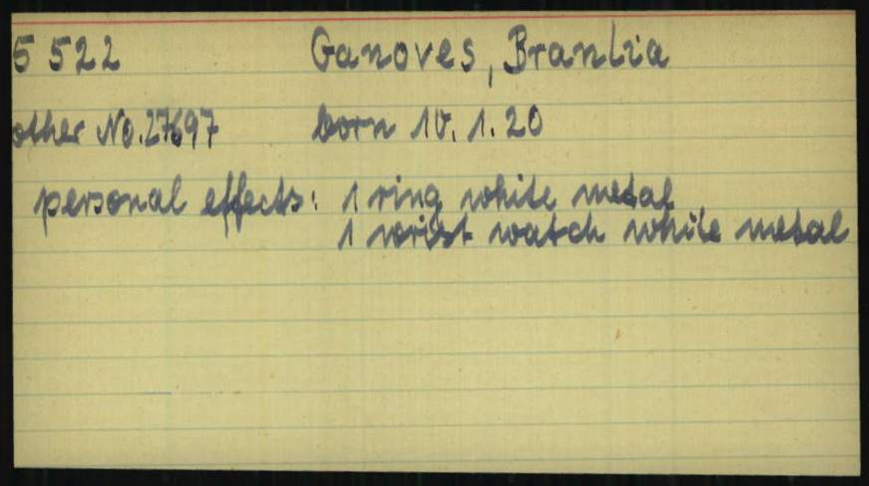 5 522 Ganoves, Branlzia
other No. 27697 born 10. 1. 20
personal effects: 1 ring white metal
1 wrist watch white metal